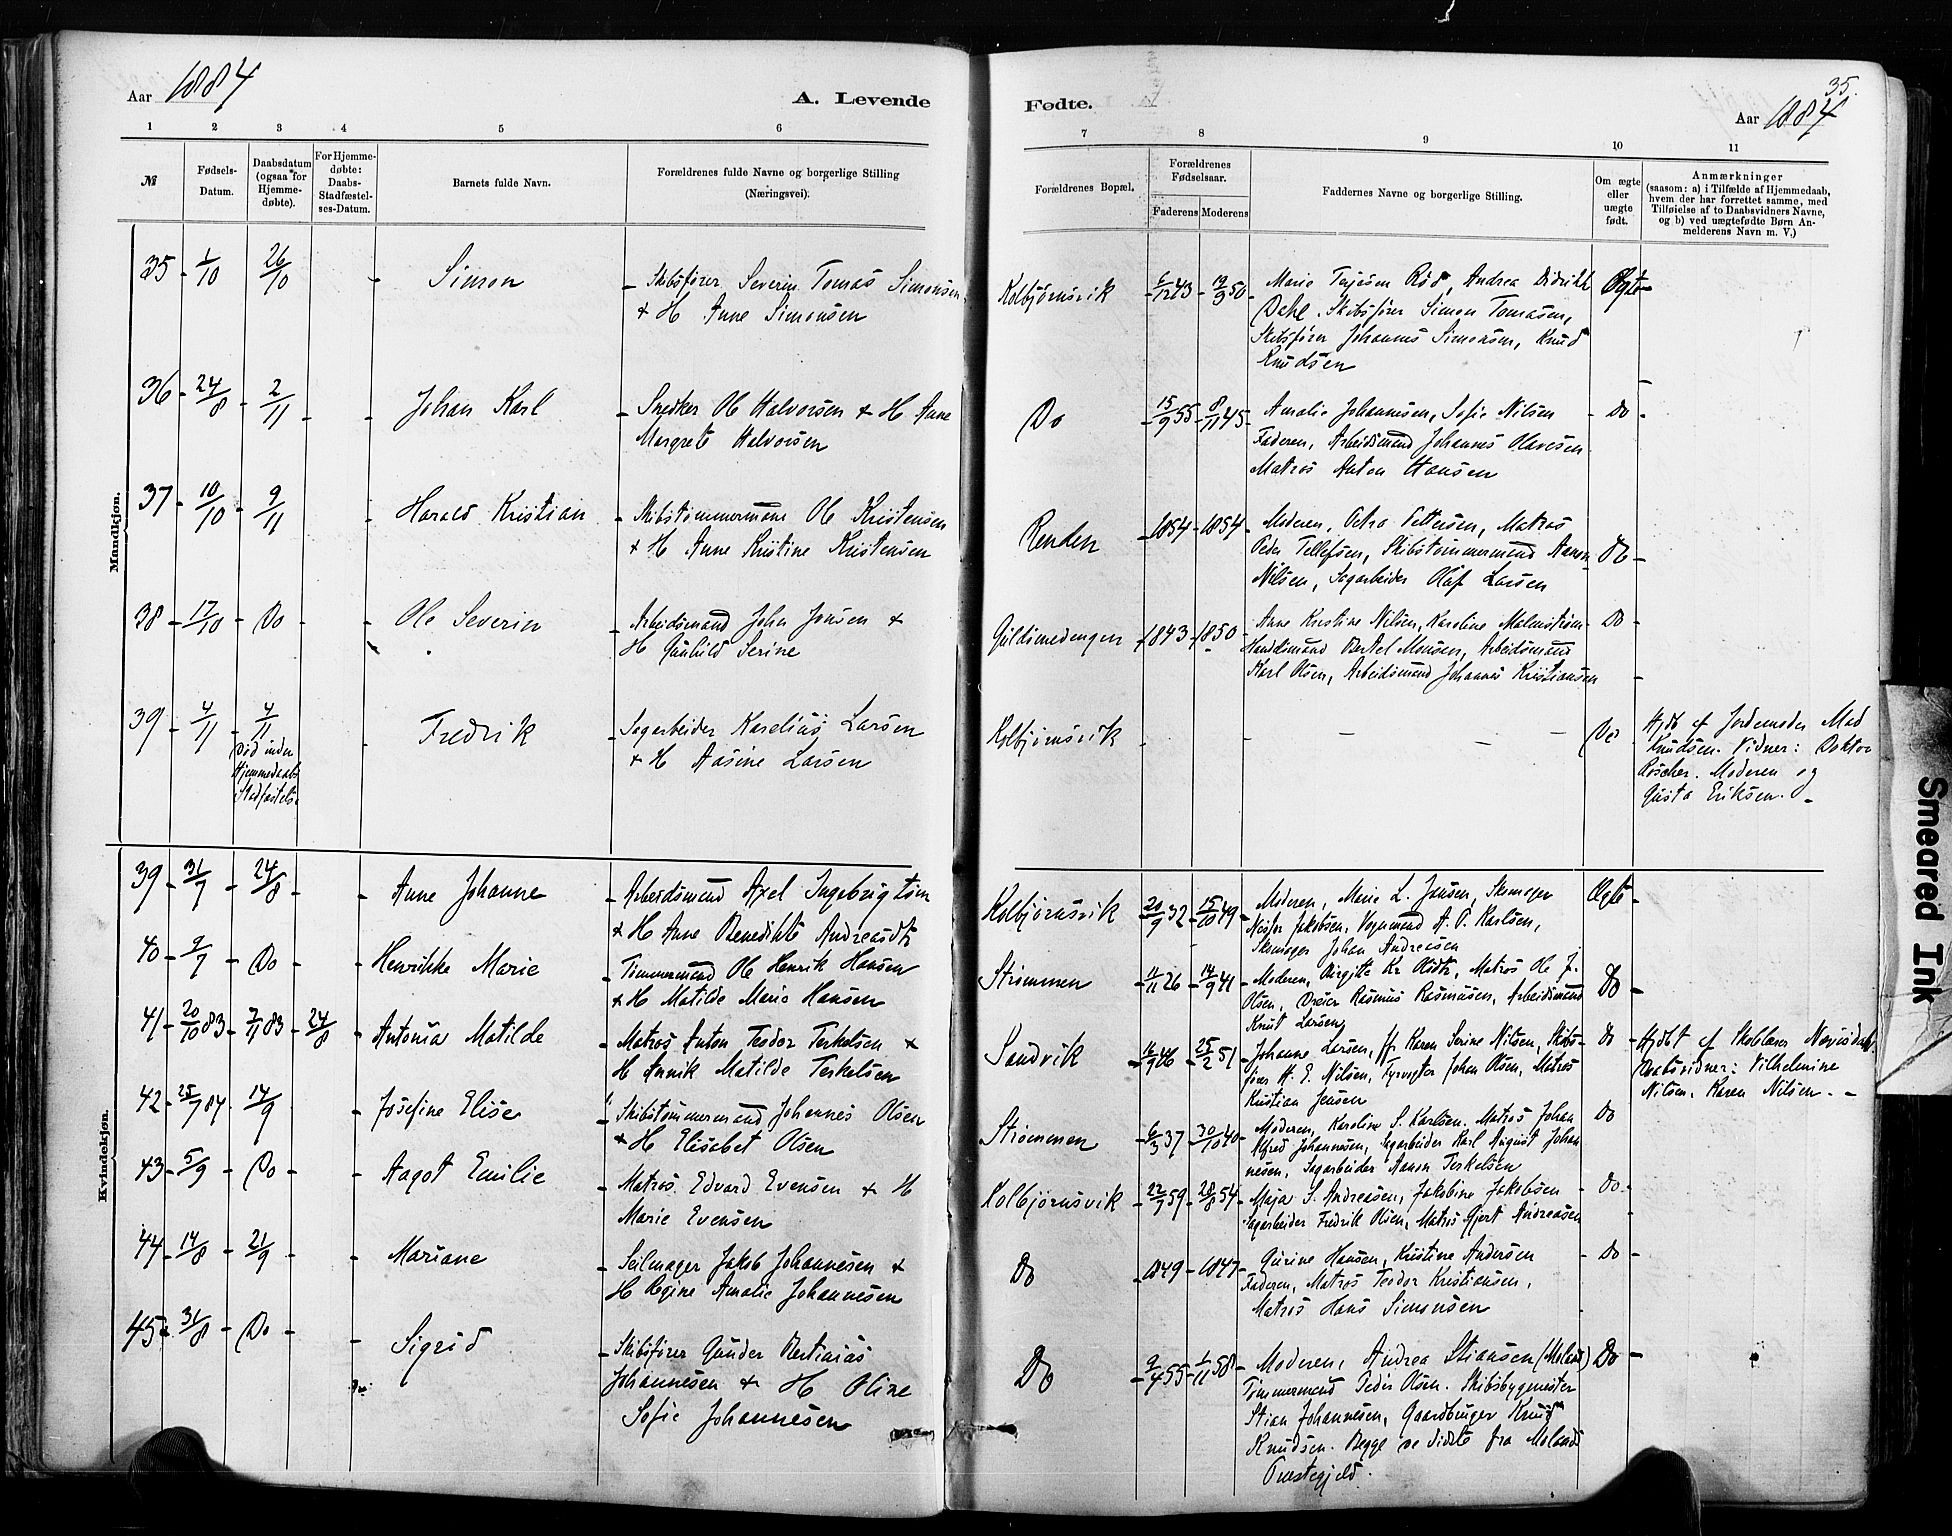 Aar 1884
A. Levende
Fødte.
35.
Aar 1884
1 2 3 4 5 6 7 8 9 10 11
№
Fødsels-
Datum.
Daabsdatum
(ogsaa for
Hjemme-
døbte).
For Hjemme-
døbte:
Daabs-
Stadfæstel-
ses-Datum.
Barnets fulde Navn.
Forældrenes fulde Navne og borgerlige Stilling
(Næringsvei).
Forældrenes Bopæl.
Forældrenes
Fødselsaar.
Faderens Moderens
Faddernes Navne og borgerlige Stilling.
Om ægte
eller
uægte
født.
Anmærkninger
(saasom: a) i Tilfælde af Hjemmedaab,
hvem der har forrettet samme, med
Tilføielse af to Daabsvidners Navne,
og b) ved uægtefødte Børn An-
melderens Navn m. V.)
Mandkjøn.
35 - 1/10 26/10 - Simon - Skibsfører Severin Tomas Simonsen
+ H Anne Simonsen
Kolbjørnsvik - 6/12 43 - 12/9 50 - Marie Terjesen Rød, Andrea Didrikk
Dahl. Skibsfører Simon Tomasen,
Skibsfører Johannes Simonsen, Knud
Knudsen
Ægte
36 - 24/8 - 2/11 - Johan Karl - Snedker Ole Halvorsen + H Anne
Margrete Halvorsen
Do - 15/9 55 - 8/11 45 - Amalie Johannesen, Sofie Nilsen
Faderen, Arbeidsmand Johannes Olavesen
Matros Anton Hansen
Do
37 - 10/10 - 9/11 - Harald Kristian - Skibstømmermand Ole Kristensen
+ H Anne Kristine Kristensen
Renden - 1854 - 1854 - Moderen, Petra Pettersen, Matros
Peder Tellefsen, Skibstømmermand Aanon
Nilsen, Sagarbeider Olaf Larsen
Do
38 - 17/10 - Do - Ole Severin - Arbeidsmand John Jensen +
H Gunhild Serine
Guldsmedengen 1843 - 1850 - Anne Kirstine Nilsen, Karoline Malmstrøm
Handelsmand Bertel Monsen, Arbeidsmand
Karl Olsen, Arbeidsmand Johannes Kristiansen
Do
39 - 4/11 - 4/11 - Fredrik - Sagarbeider Karelius Larsen
+ H Aasine Larsen
Død inden
Hjemmedaabs
Stadfæstelse
Kolbjørnsvik - Do
Hjdt af Jordemoder Mad
Knudsen. Vidner: Doktor
Røscher. Moderen og
Gusta Eriksen. -
Kvindekjøn.
39 - 31/7 - 24/8 - Anne Johanne - Arbeidsmand Axel Ingebrigtsen
+ H Anne Benedikte Andreasdtr
Kolbjørnsvik - 20/9 32 - 15/10 49 - Moderen, Marie L. Jensen, Skomager
Jakobsen, Vognmand A. P. Karlsen,
Skomager Johan Andreasen
Ægte -
40 - 9/7 - Do - Henrikke Marie - Tømmermand Ole Henrik Hansen
+ H Matilde Marie Hansen
Strømmen - 11/11 26 - 14/9 41 - Moderen, Birgitte Kr Olsdtr, Matros Ole J.
Olsen, Dreier Rasmus Rasmussen, Arbeidsmand
Knut Larsen
Do -
41 - 20/10 83 - 7/11 83 - 24/8 - Antonia Matilde - Matros Anton Teodor Terkelsen +
H Annik Matilde Terkelsen
Sandvik - 16/9 46 - 25/2 51 - Johanne Larsen, Fr Karen Serine Nilsen, Skibs-
fører H. E. Nilsen, Fyrvogter Johan Olsen, Matros
Kristian Jensen
Do - Hjdbt af Skolelærer
Daabsvidner: Vilhelmine
Nilsen, Karen Nilsen. -
42 - 25/7 84 - 14/9 - Josefine Elise - Skibstømmermand Johannes Olsen
+ H Elisabet Olsen
Strømmen - 6/3 37 - 30/10 40 - Moderen, Karoline S. Karlsen. Matros Johan
Alfred Johannesen, Sagarbeider Karl August Johan
nesen, Sagarbeider Aanon Terkelsen
Do
43 - 5/9 - Do - Aagot Emilie - Matros Edvard Evensen + H
Marie Evensen
Kolbjørnsvik - 22/9 59 - 28/8 54 - Maja S. Andreasen, Jakobine Jakobsen
Sagarbeider Fredrik Olsen, Matros Gjert Andreasen
Do
44 - 14/8 - 21/9 - Mariane - Seilmager Jakob Johannesen +
H Regine Amalie Johannesen
Do - 1849 - 1847 - Gurine Hansen, Kristine Andersen
Faderen, Matros Teodor Kristiansen,
Matros Hans Simonsen
Do -
45 - 31/8 - Do - Sigrid - Skibsfører Gunder Bertinius
Johannesen + H Oline
Sofie Johannesen
Do - 9/4 55 - 1/11 58 - Moderen, Andrea Stiansen (Moland)
Tømmermand Peder Olsen. Skibsbygmester
Stian Johannesen, Gaardbruger Knud
Knudsen. Begge de sidste fra Molands
Præstegjeld.
Do -
Smeared Ink